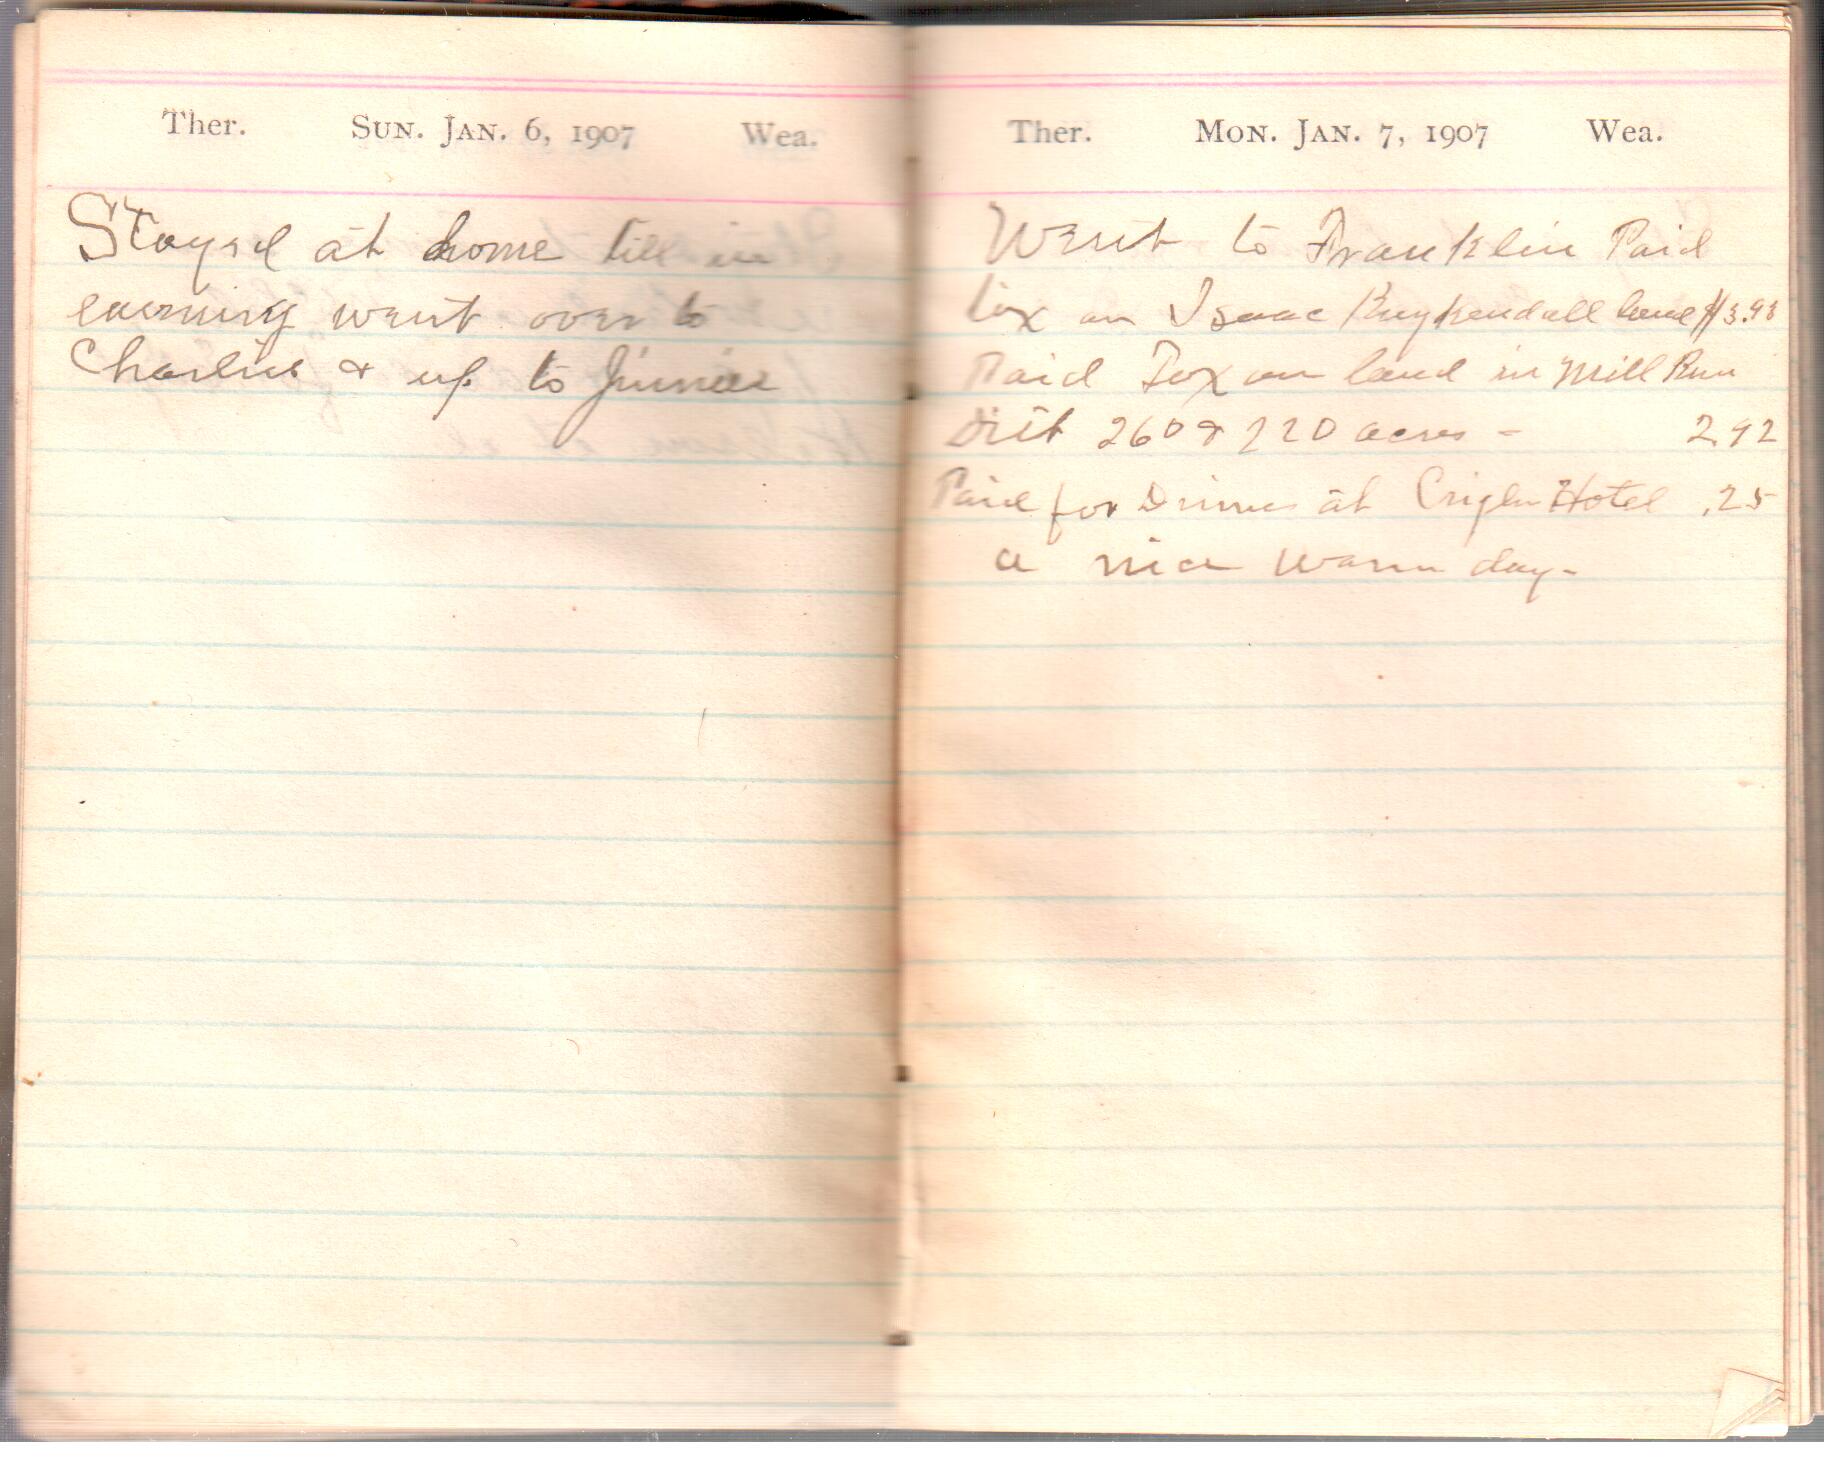 Ther. Sun. Jan. 6, 1907 Wea.
Stayed at home till in
evening went over to
Charlies & up to Jimies
Ther. Mon. Jan. 7, 1907 Wea.
Went to Franklin Paid
tax on Isaac Kuykendall land $3.93
Paid Tax on land in Mill Run
Dist 260 & 220 acres - 2.92
Paid for Dinner at Crigler Hotel .25
a nice warm day-